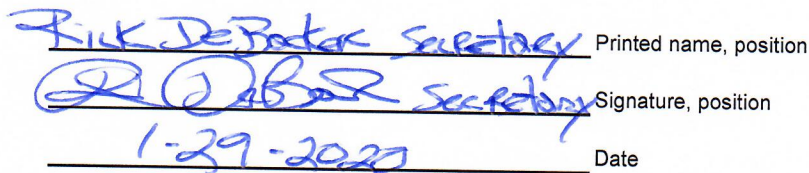 Rick DeBacker Secretary Printed name, position
R DeBack Secretary Signature, position
1-29-2020 Date